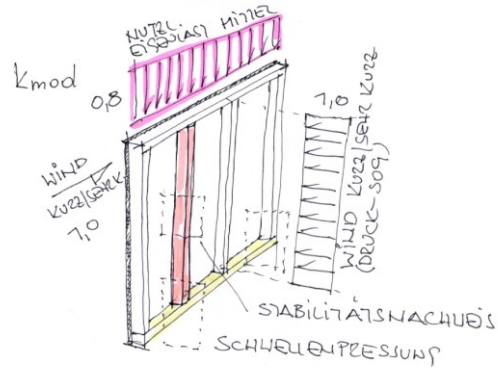 NUTZL.
EIGENLAST MITTEL
kmod
0,8
WIND
KURZ/SEHR K
1,0
1,0
WIND KURZ/SEHR KURZ
(DRUCK-SOG)
STABILITÄTSNACHWEIS
SCHWELLENPRESSUNG